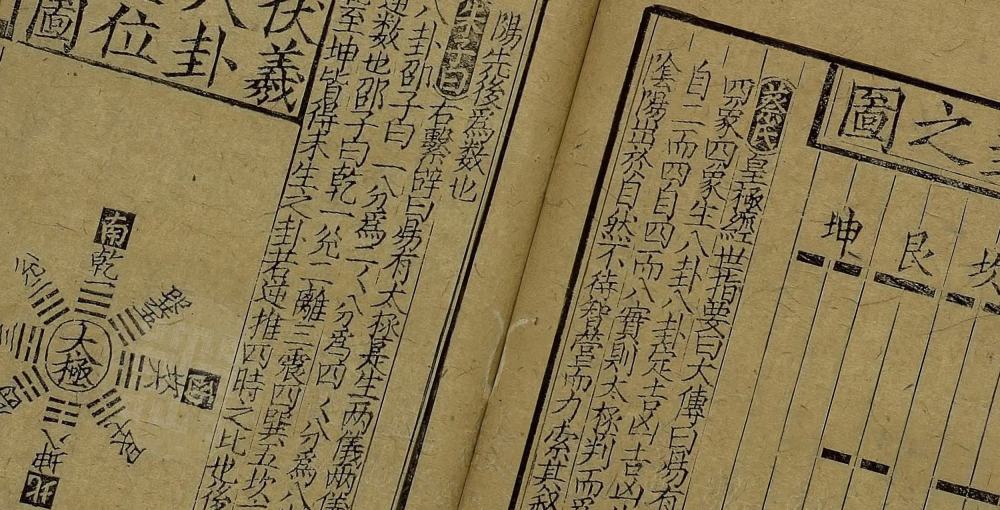 之圖
坎
艮
坤
蔡氏皇極經世指要曰大傳曰易有
四象四象生八卦八卦定吉凶吉凶
自二而四自四而八實則太極判而爲
陰陽出於自然不待智營而力索其
陽先後爲數也
朱子曰右繫辭曰易有大極是生两儀两儀
八卦邵子曰一分爲二〻分爲四〻分爲八
逆數也邵子曰乾一兊二離三震四巽五坎六
至坤皆得未生之卦若逆推四時之比也後
伏羲
八卦
位
圖
南
乾一
兊
巽
大極
坎
西
艮
坤八
北